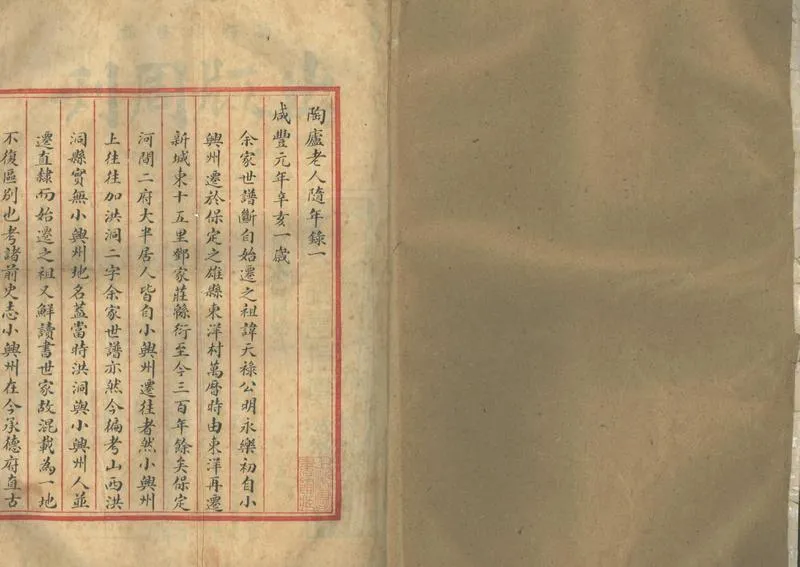 陶廬老人隨年錄一
咸豐元年辛亥一歲
余家世譜斷自始遷之祖諱天祿公明永樂初自小
興州遷於保定之雄縣東洋村萬曆時由東洋再遷
新城東十五里鄧家莊緜衍至今三百年餘矣保定
河間二府大半居人皆自小興州遷往者然小興州
上往往加洪洞二字余家世譜亦然今徧考山西洪
洞縣實無小興州地名蓋當時洪洞與小興州人並
遷直隸而始遷之祖又鮮讀書世家故混載為一地
不復區別也考諸前史志小興州在今承德府直古